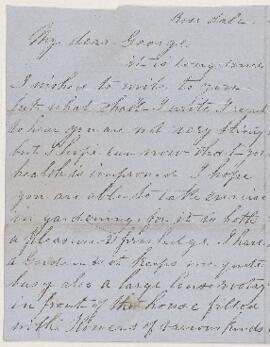 Rose dale
My dear George
it is long since
I wished to write to you
but what shall I write I
to hear you are not very strong
but I hope can now that your
health is improved I hope
you are able to take exercise
in gardening for it is both
a pleasure & I have
a Garden & it keeps me quite
busy also a large Conservatory
in front of the house filled
with Flowers of various kinds